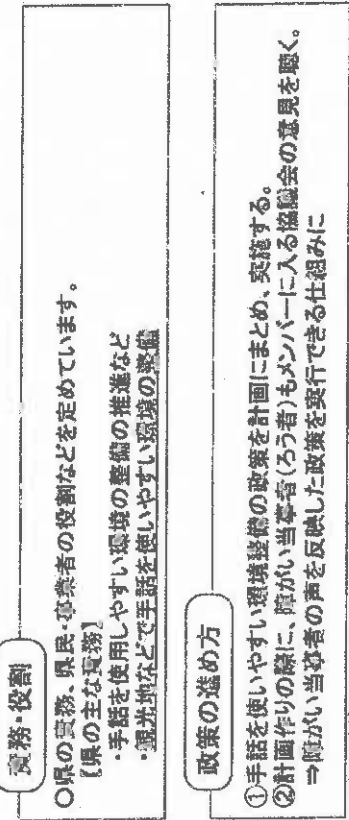 責務・役割
○県の責務、県民・事業者の役割などを定めています。
【県の主な責務】
・手話を使用しやすい環境の整備の推進など
・観光地などで手話を使いやすい環境の整備
政策の進め方
①手話を使いやすい環境整備の政策を計画にまとめ、実施する。
②計画作りの際に、障がい当事者(ろう者)もメンバーに入る協議会の意見を聴く。
⇒障がい当事者の声を反映した政策を実行できる仕組みに